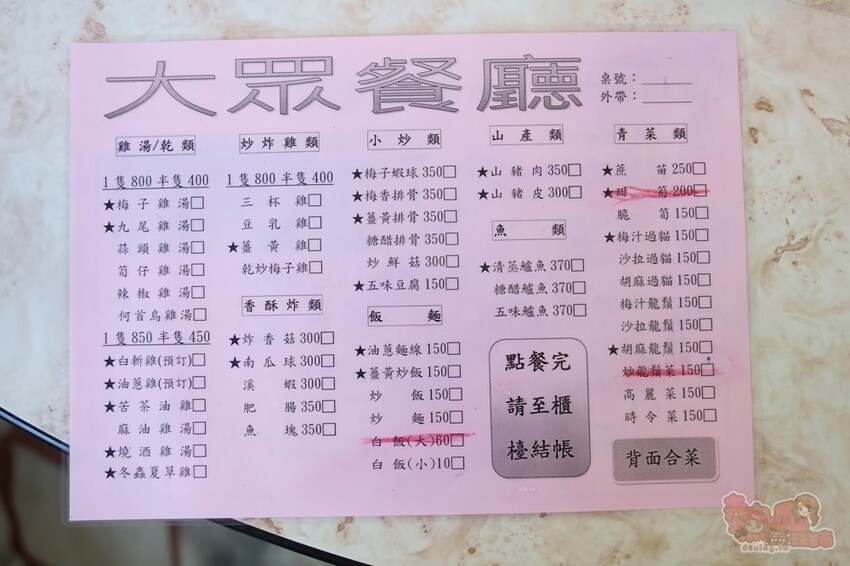 大眾餐廳
桌號：
外帶：
雞湯/乾類
1隻800 半隻400
★梅子雞湯□
★九尾雞湯□
蒜頭雞湯□
筍仔雞湯□
辣椒雞湯□
何首烏雞湯□
1隻850 半隻450
★白斬雞(預訂)□
★油蔥雞(預訂)□
★苦茶油雞□
麻油雞湯□
★燒酒雞湯□
★冬蟲夏草雞□
炒炸雞類
1隻800 半隻400
三杯雞□
豆乳雞□
★薑黃雞□
乾炒梅子雞□
香酥炸類
★炸香菇300□
★南瓜球300□
溪蝦300□
肥腸350□
魚塊350□
小炒類
★梅子蝦球350□
★梅香排骨350□
★薑黃排骨350□
糖醋排骨350□
炒鮮菇300□
★五味豆腐150□
飯麵
★油蔥麵線150□
★薑黃炒飯150□
炒飯150□
炒麵150□
白飯(大)60□
白飯(小)10□
山產類
★山豬肉350□
★山豬皮300□
魚類
★清蒸鱸魚370□
糖醋鱸魚370□
五味鱸魚370□
點餐完
請至櫃
檯結帳
青菜類
★蔗苗250□
★甜筍200□
脆筍150□
★梅汁過貓150□
沙拉過貓150□
胡麻過貓150□
梅汁龍鬚150□
沙拉龍鬚150□
★胡麻龍鬚150□
炒龍鬚菜150□
高麗菜150□
時令菜150□
背面合菜